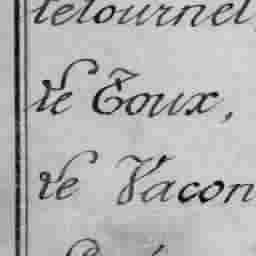 letournel
de Toux,
de Vacon